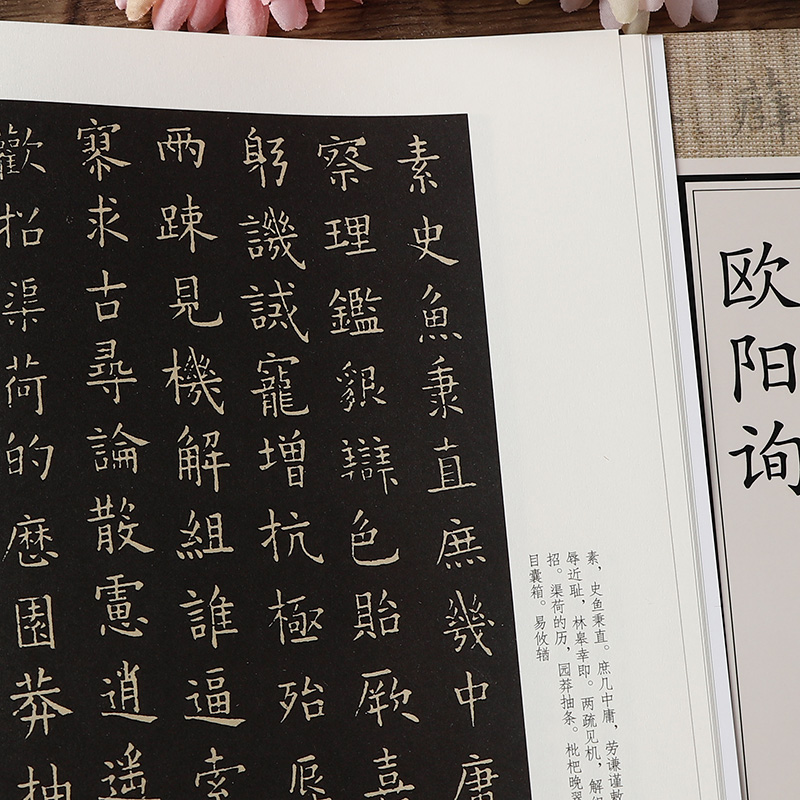 薛
欧阳询
素史魚秉直庶幾中庸
察理鑑貌辯色貽厥嘉
躬譏誡寵增抗極殆辱
兩疎見機解組誰逼索
寥求古尋論散慮逍遙
歡招渠荷的歷園莽抽
素，史鱼秉直。庶几中庸，劳谦谨敕
辱近耻，林皋幸即。两疏见机，解组
招。渠荷的历，园莽抽条。枇杷晚翠
目囊箱。易攸